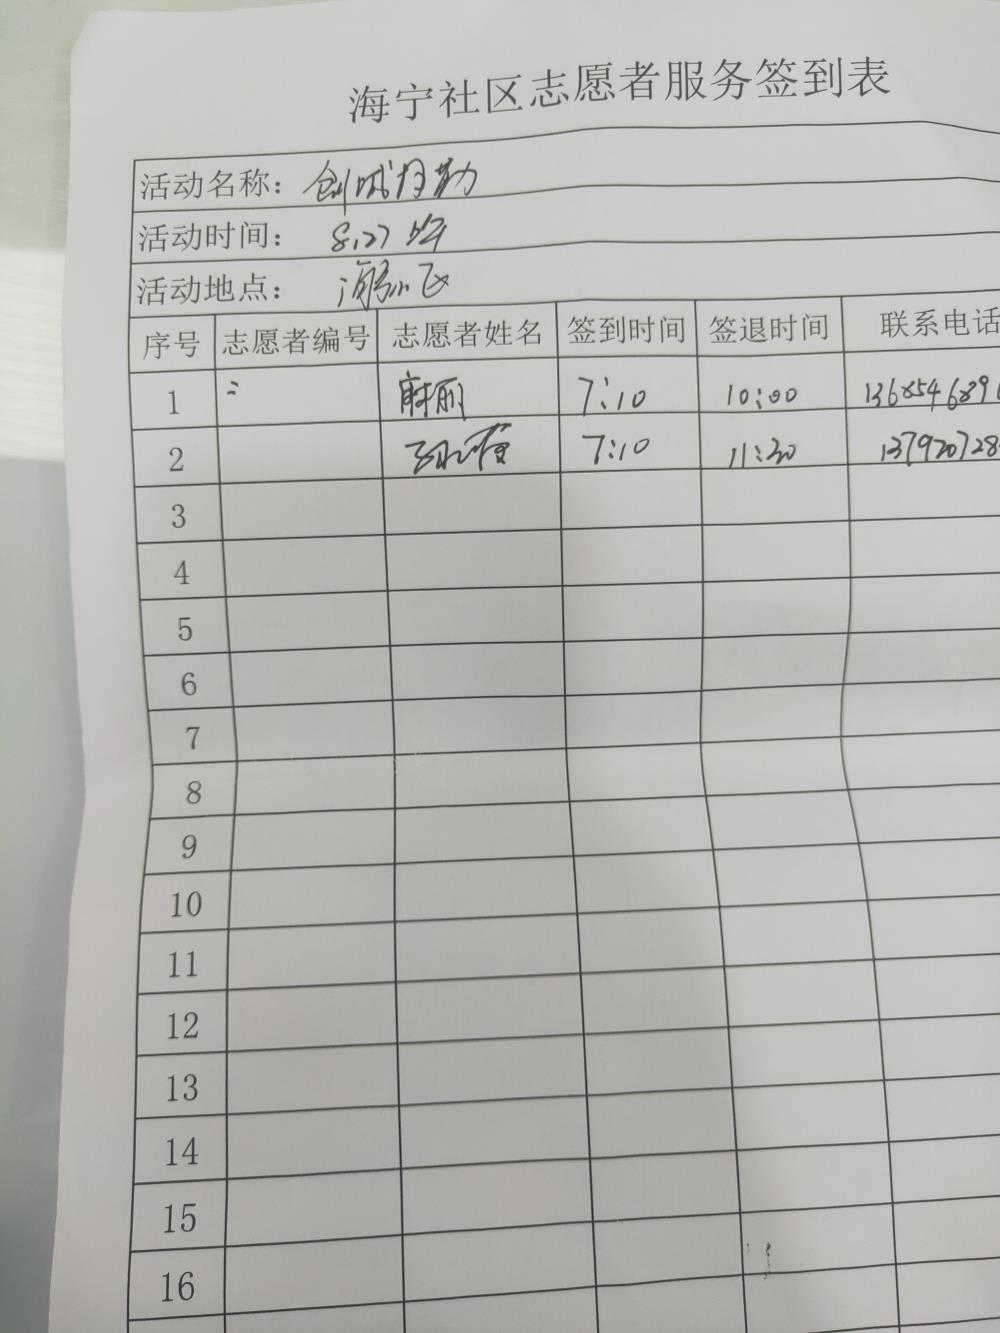 海宁社区志愿者服务签到表
活动名称：创城执勤
活动时间：8.27
活动地点：
序号 志愿者编号 志愿者姓名 签到时间 签退时间 联系电话
1 7:10 10:00 136854689
2 7:10 11:30 137920728
3
4
5
6
7
8
9
10
11
12
13
14
15
16